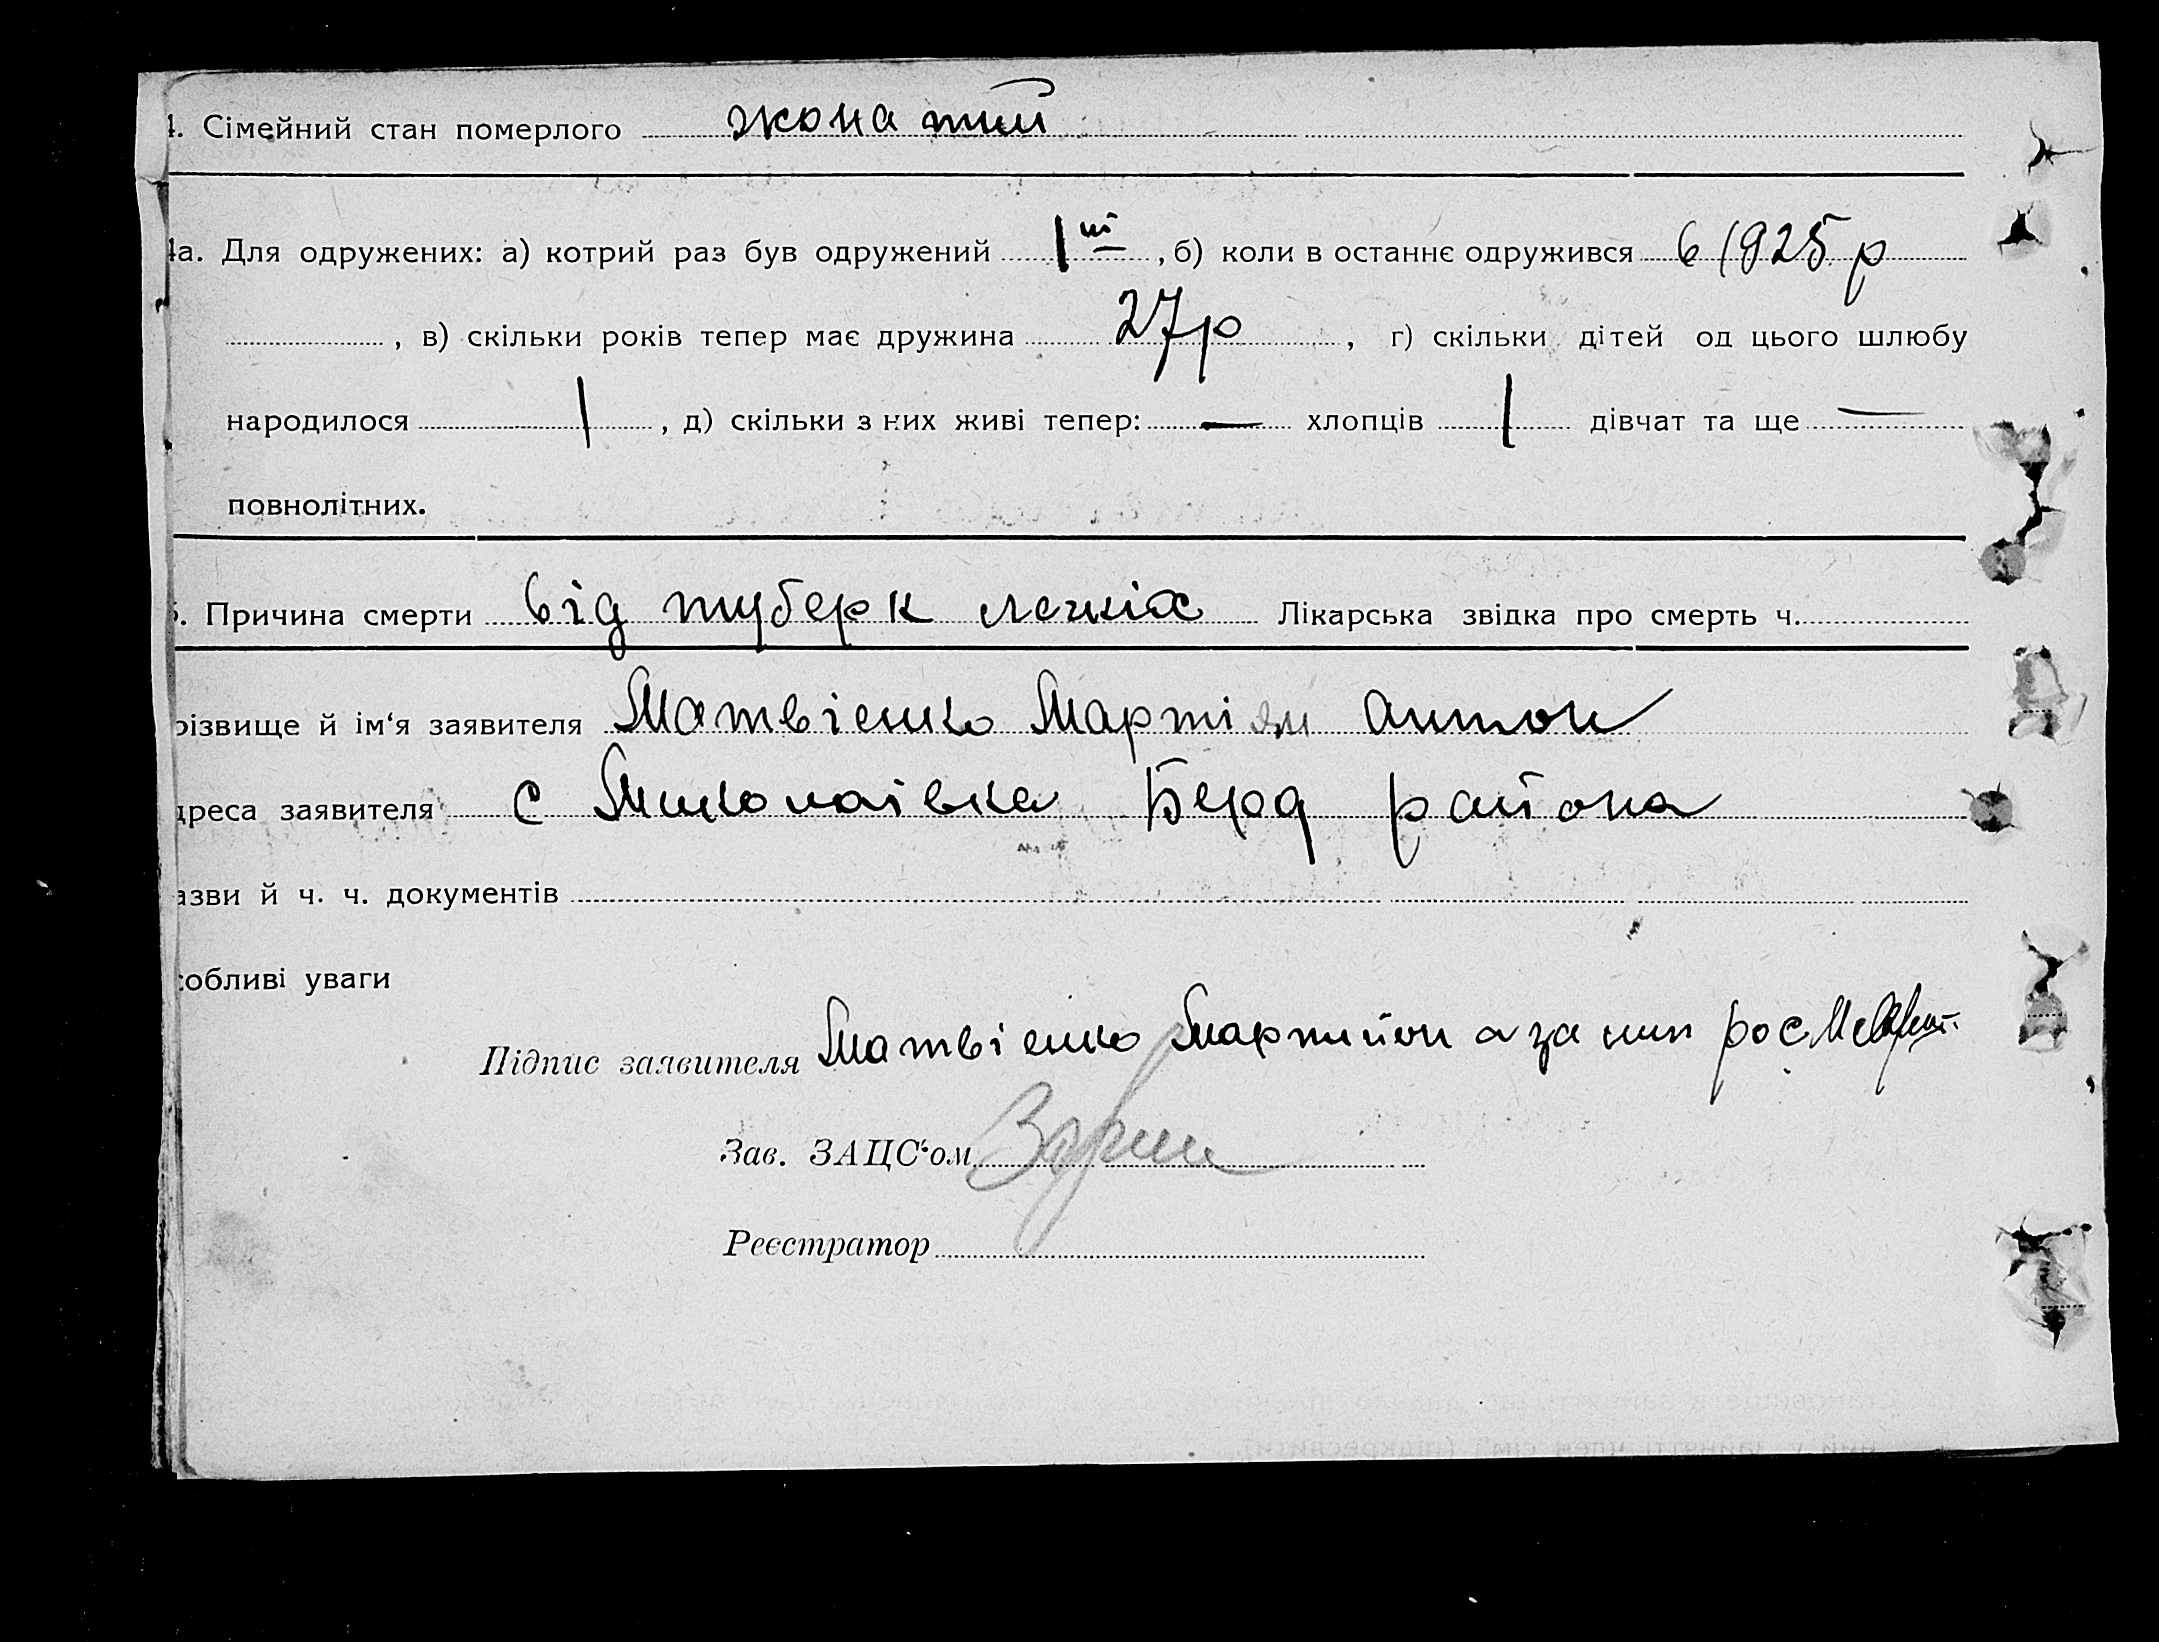 4. Сімейний стан померлого жонатий
4а. Для одружених: а) котрий раз був одружений 1ий, б) коли в останнє одружився в 1925 р
, в) скільки років тепер має дружина 27 р, г) скільки дітей од цього шлюбу
народилося 1, д) скільки з них живі тепер: — хлопців 1 дівчат та ще —
повнолітних.
5. Причина смерти від туберк легкіх Лікарська звідка про смерть ч.
різвище й ім‘я заявителя Матвієнко Мартіян Антон
дреса заявителя с Миколаївка Берд района
азви й ч. ч. документів
собливі уваги
Підпис заявителя Матвієнко Мартиян а за нип рос
Зав. ЗАЦС‘ом
Реєстратор